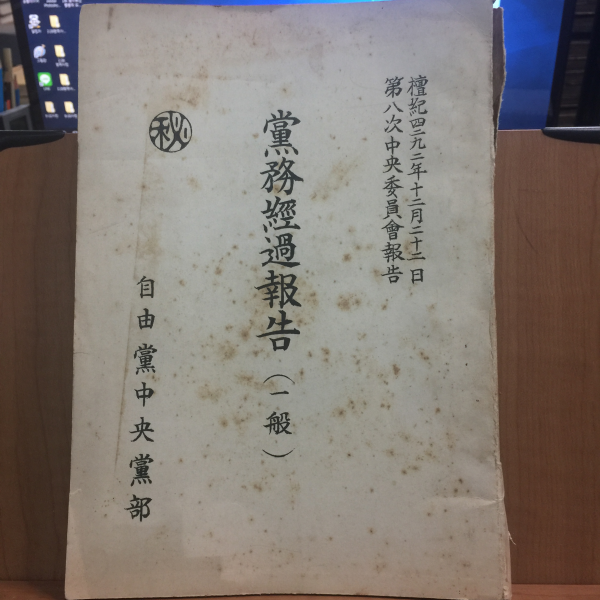 檀紀四二九二年十二月二十二日
第八次中央委員會報告
黨務經過報告（一般）
秘
自由黨中央黨部